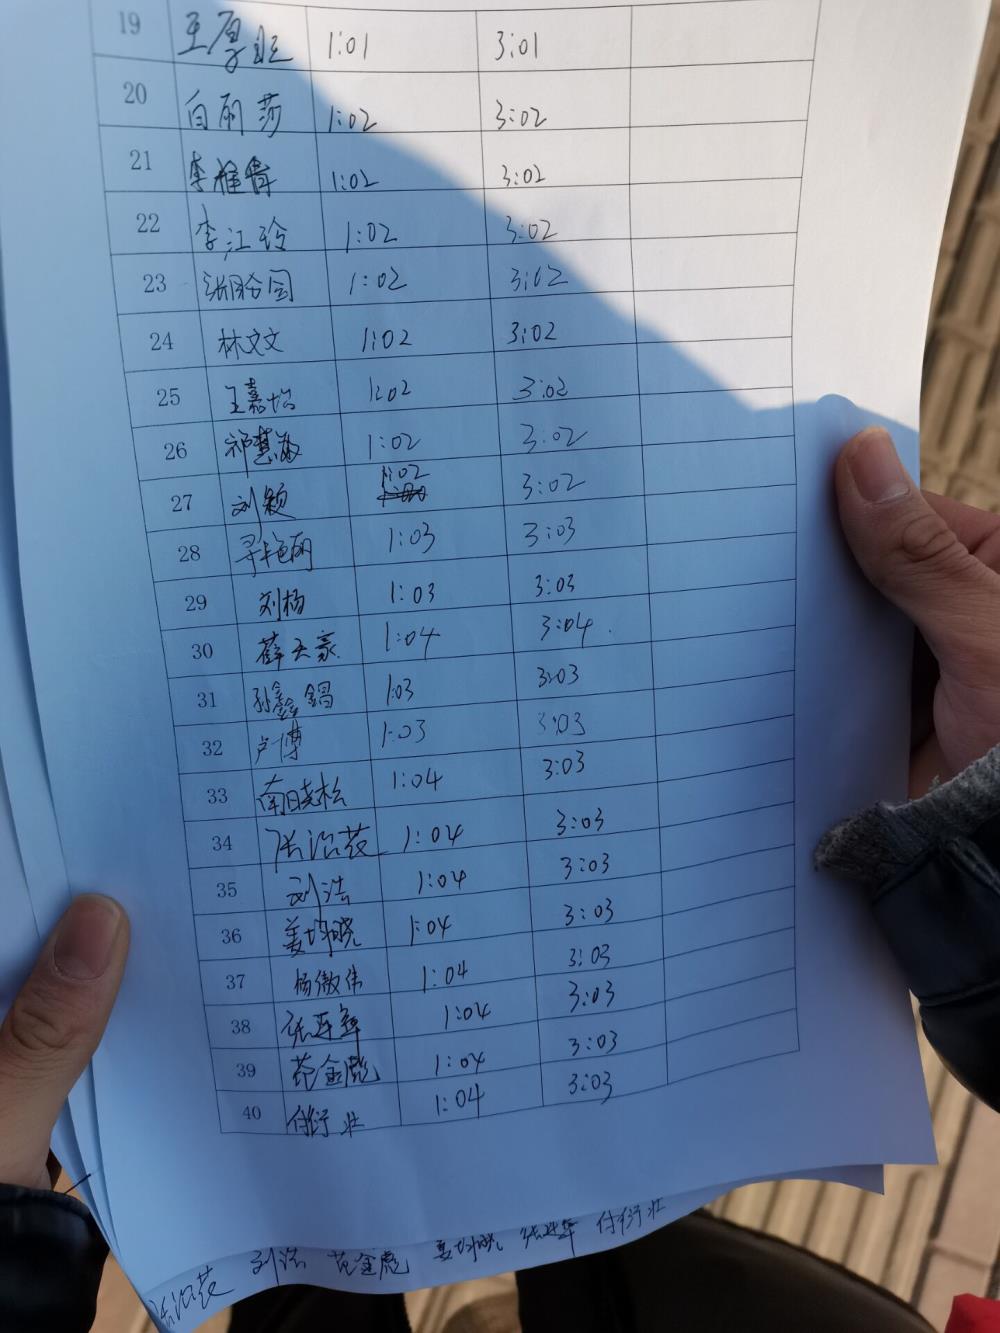 19 王厚班 1:01 3:01
20 白丽莎 1:02 3:02
21 李雅倩 1:02 3:02
22 李江玲 1:02 3:02
23 1:02 3:02
24 林文文 1:02 3:02
25 王嘉怡 1:02 3:02
26 祁慧敏 1:02 3:02
27 刘颖 1:02 3:02
28 寻艳丽 1:03 3:03
29 刘杨 1:03 3:03
30 薛天豪 1:04 3:04
31 孙鑫锠 1:03 3:03
32 卢博 1:03 3:03
33 南晓松 1:04 3:03
34 张滔茂 1:04 3:03
35 刘浩 1:04 3:03
36 姜均晓 1:04 3:03
37 杨傲伟 1:04 3:03
38 张连军 1:04 3:03
39 范金彪 1:04 3:03
40 付衍壮 1:04 3:03
刘浩 范金彪 姜均晓 张连军 付衍壮